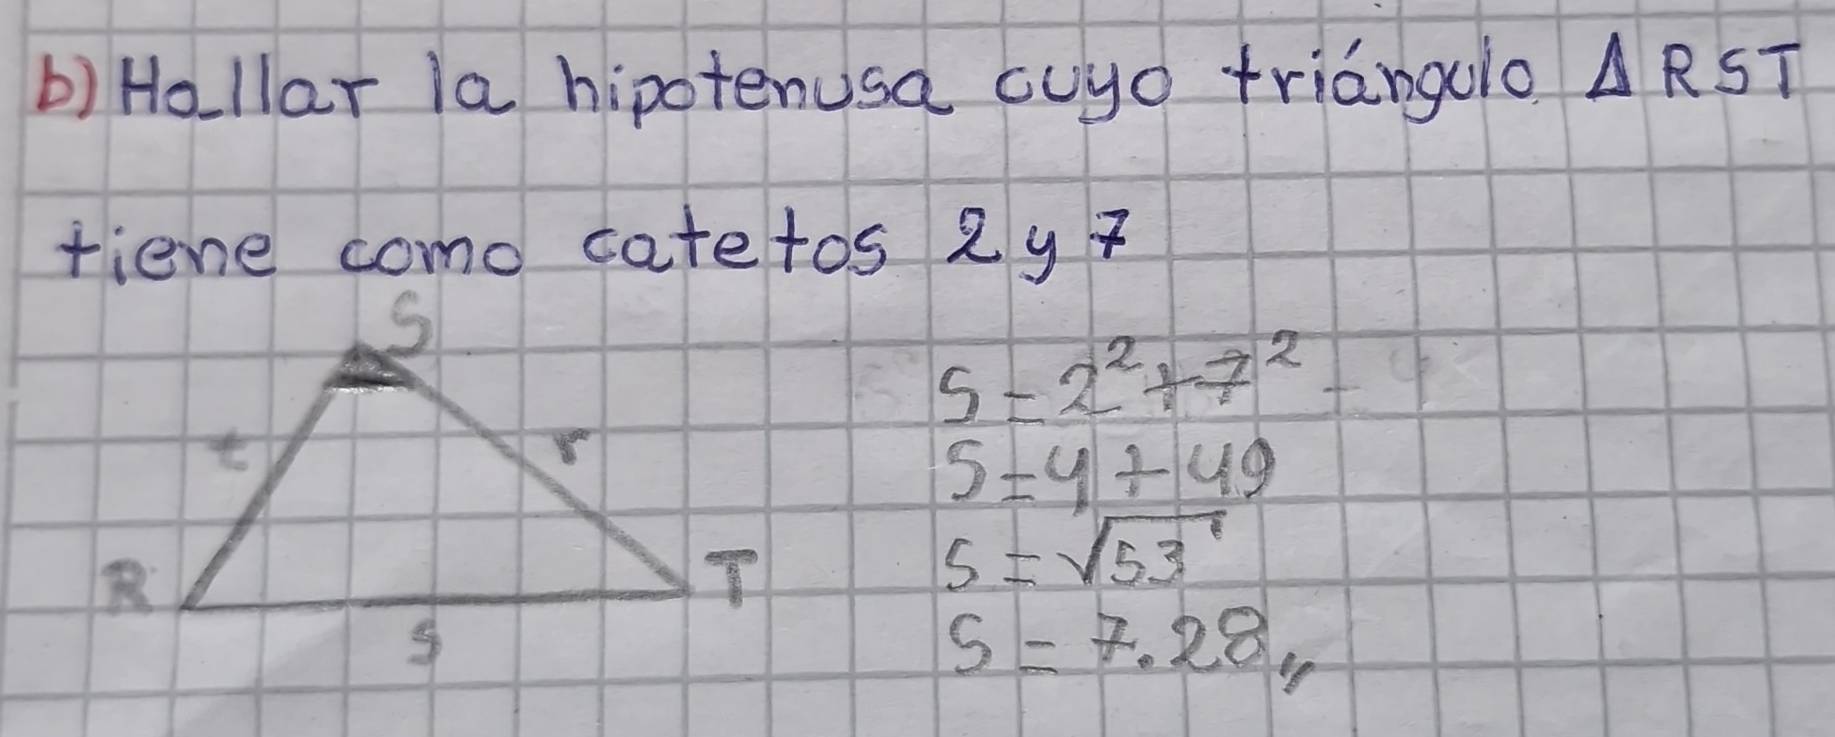 b) Hallar la hipotenusa cuyo triángulo Δ RST
tiene como catetos 2 y 7
S
t
r
R
T
s
S = 2² + 7²
S = 4 + 49
S = √53
S = 7.28,,